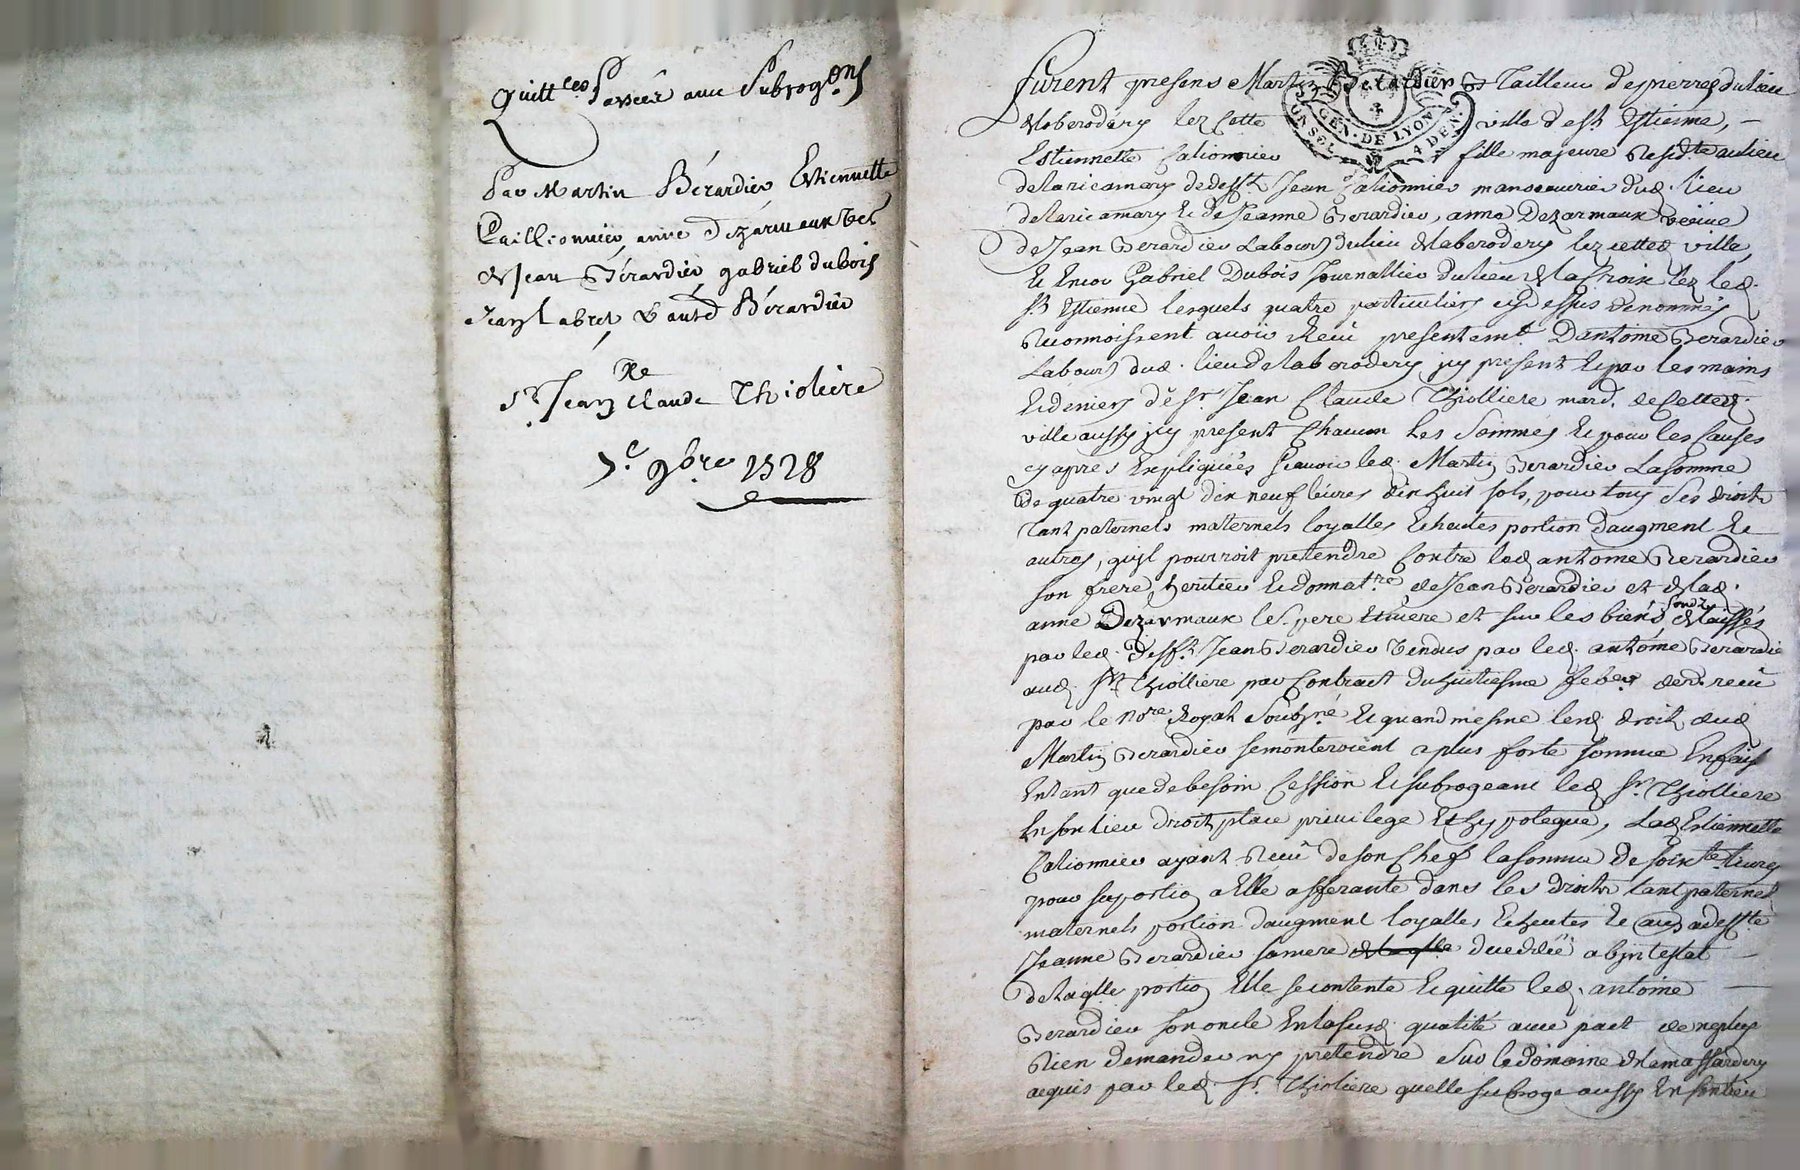 quitt.ces Passées avec Subrog.ons
Par Martin Bérardier Estiennette
Pallionnier, anne Dezarmaux vef.
de Jean Bérardier, gabriel dubois
et antd Bérardier
Re
Sr. Jean Claude Thioliere
5.e 9bre 1728
Furent presens Martin Berardier Tailleur de pierres du lieu
de laberodery lez cette ville de St Estienne,
GEN. DE LYON
Estiennette Palionnier fille majeure Resid.te au lieu
de la ricamary de deff.t Jean Palionnier manoeuvrier dud. lieu
de la ricamary et de Jeanne Berardier, anne Dezarmaux veüve
de Jean Berardier Labour.r du lieu de laberodery lez cette d. ville,
et encor Gabriel Dubois Journallier du lieu de la Croix lez led.
St Estienne lesquels quatre particuliers cy dessus denommés
Reconnoissent avoir Receu presentem.t D'antoine Berardier
Labour.r dud. lieu de laberodery icy present et par les mains
et deniers de Sr. Jean Claude Thiolliere march. de cette d.
ville aussy icy present chacun les Sommes et pour les Causes
cy apres Expliquées scavoir led. Martin Berardier La somme
de quatre vingt dix neuf livres dix huit sols, pour tous ses droits
tant paternels maternels loyalles echeutes portion d'augment et
autres, qu'jl pourroit pretendre Contre led. antoine Berardier
son frere, heritier et donnat.re de Jean Berardier et de lad.
anne Dezarmaux les pere et mere et sur les biens fondz delaissés
par led. deff.t Jean Berardier vendus par led. antoine Berardier
aud. Sr. Thiolliere par Contract du huitiesme febv.er der. receu
par le no.re Royal Soubz.né et quand mesme lesd. droits dud.
Martin Berardier se monteroient a plus forte somme En fait
En tant que de besoin Cession et subrogeant led. Sr. Thiolliere
En son lieu droit place privilege et hypoteque, Lad. Estiennette
Palionnier ayant Receu de son Chef la somme de soix.te livres
pour sa portion a Elle afferante dans les droits tant paternels
maternels portion d'augment loyalles, Echeutes et au d. a deff.te
Jeanne Berardier sa mere decedée abjntestat
de laq.lle portion Elle se contente et quitte led. antoine
Berardier son oncle En la susd. qualité avec pact de ne plus
Rien demander ny pretendre sur le Domaine de la massardery
acquis par led. Sr. Thioliere quelle subroge aussy En son lieu